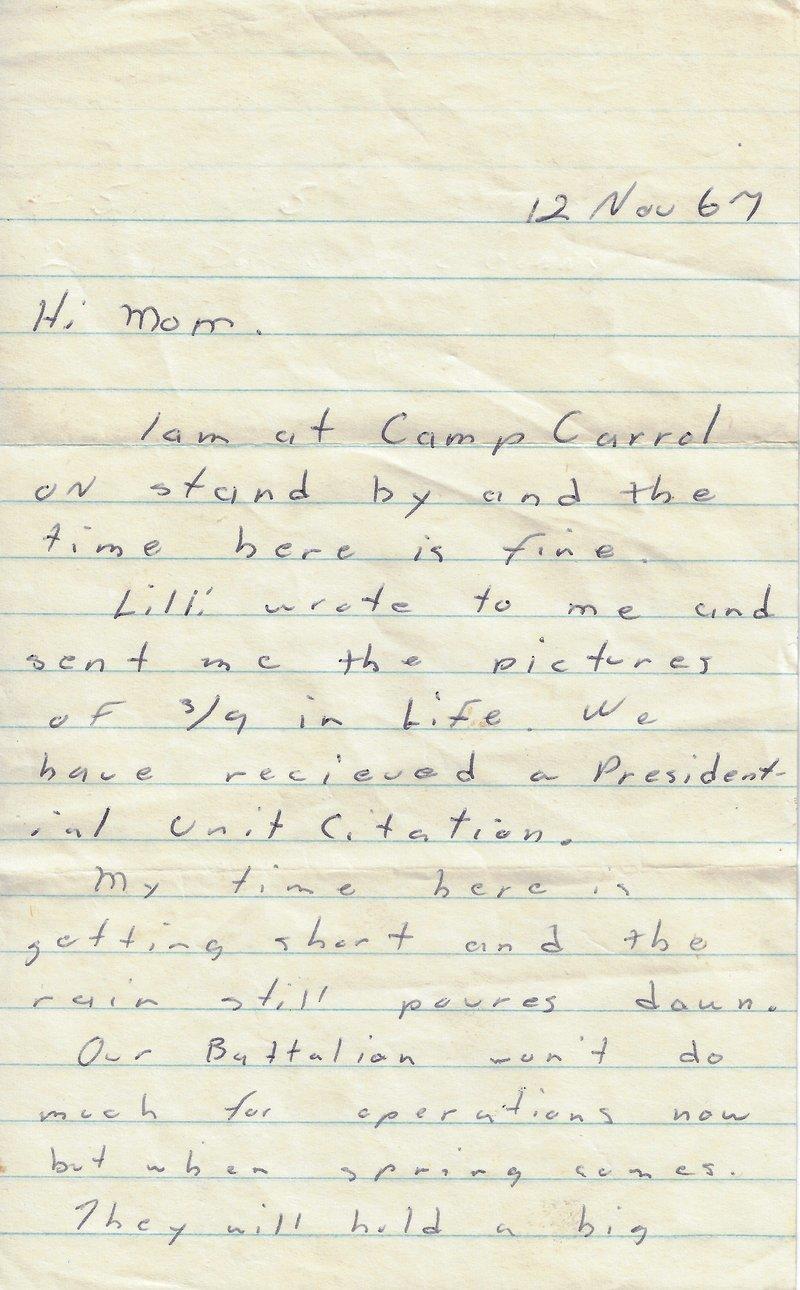 12 Nov 67
Hi Mom.
I am at Camp Carrol
on stand by and the
time here is fine.
Lilli wrote to me and
sent me the pictures
of 3/9 in Life. We
have recieved a President-
ial Unit Citation.
My time here is
getting short and the
rain still poures down.
Our Battalion won't do
much for operations now
but when spring comes.
They will hold a big